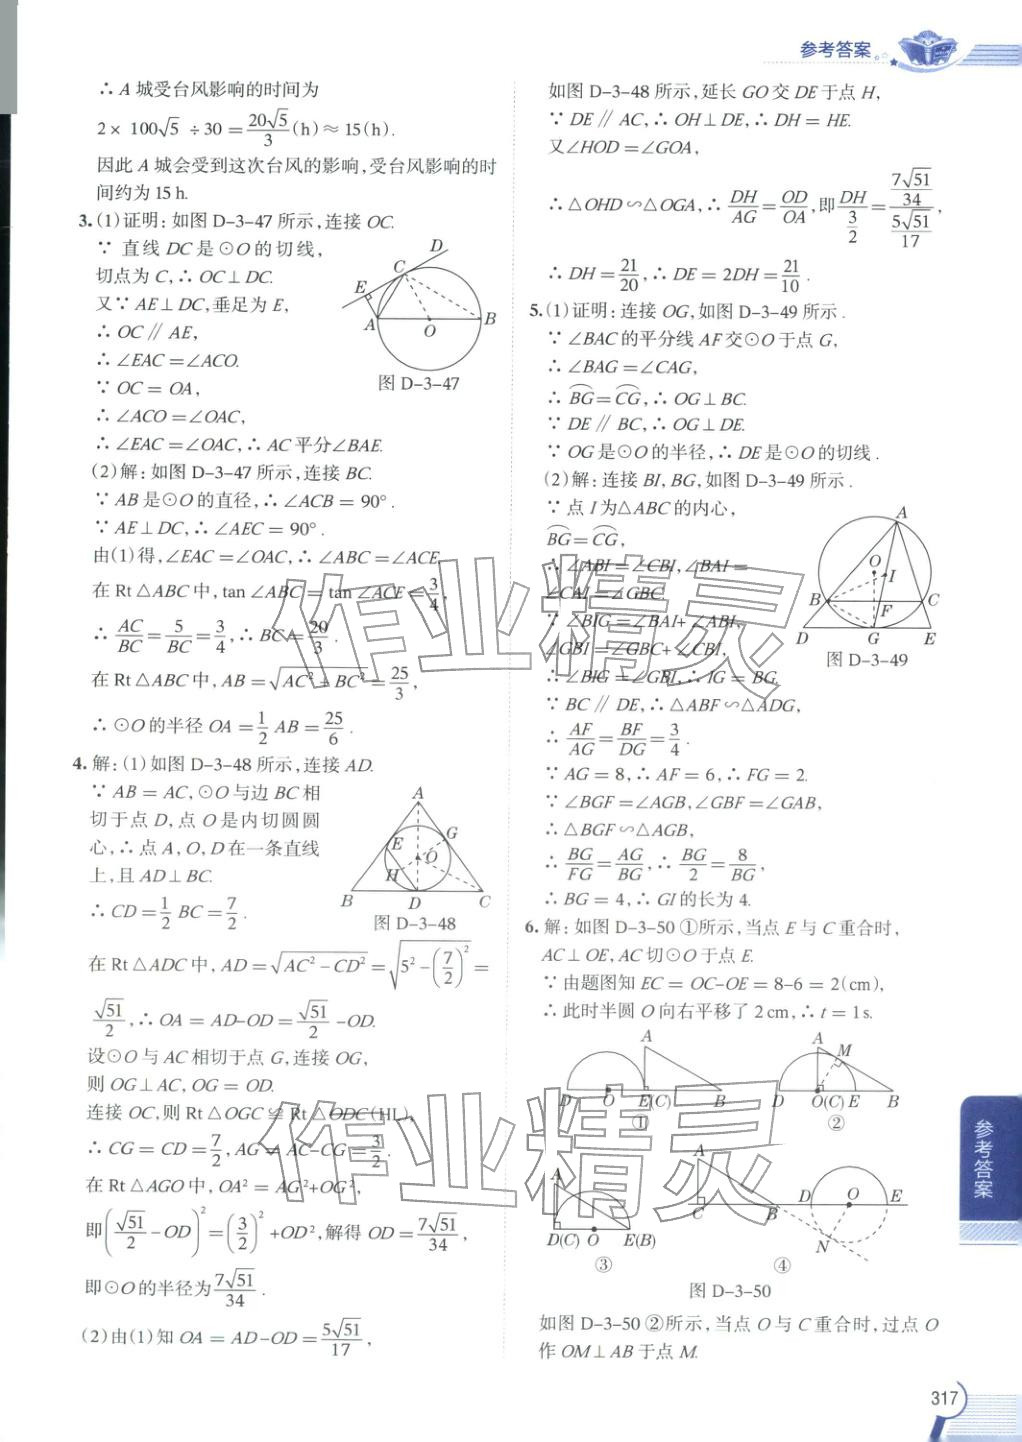 参考答案
∴ A 城受台风影响的时间为
2× 100√5 ÷30 = 20√5/3 (h) ≈ 15(h).
因此 A 城会受到这次台风的影响,受台风影响的时
间约为 15 h.
3. (1)证明:如图 D-3-47 所示,连接 OC.
∵ 直线 DC 是 ⊙O 的切线,
切点为 C,∴ OC⊥DC.
又∵ AE⊥DC,垂足为 E,
∴ OC∥AE,
∴ ∠EAC=∠ACO.
∵ OC=OA,
∴ ∠ACO=∠OAC,
∴ ∠EAC=∠OAC,∴ AC平分∠BAE.
D
C
E
A
O
B
图 D-3-47
(2)解:如图 D-3-47 所示,连接 BC.
∵ AB是⊙O的直径,∴ ∠ACB=90°.
∵ AE⊥DC,∴ ∠AEC=90°.
由(1)得,∠EAC=∠OAC,∴ ∠ABC=∠ACE,
在 Rt△ABC中,tan ∠ABC=tan ∠ACE=3/4,
∴ AC/BC=5/BC=3/4,∴ BC=20/3.
在 Rt△ABC中,AB=√(AC²+BC²)=25/3,
∴ ⊙O的半径 OA=1/2 AB=25/6.
4. 解:(1)如图 D-3-48 所示,连接 AD.
∵ AB=AC,⊙O与边 BC相
切于点 D,点 O 是内切圆圆
心,∴ 点 A,O,D在一条直线
上,且 AD⊥BC.
∴ CD=1/2 BC=7/2.
A
G
E
O
H
B
D
C
图 D-3-48
在 Rt△ADC中,AD=√(AC²-CD²)=√(5²-(7/2)²)=
√51/2,∴ OA=AD-OD=√51/2-OD.
设⊙O与AC相切于点 G,连接 OG,
则 OG⊥AC,OG=OD.
连接 OC,则 Rt△OGC≌Rt△ODC(HL),
∴ CG=CD=7/2,AG=AC-CG=3/2.
在 Rt△AGO中,OA²=AG²+OG²,
即(√51/2-OD)²=(3/2)²+OD²,解得 OD=7√51/34,
即⊙O的半径为7√51/34.
(2)由(1)知 OA=AD-OD=5√51/17,
如图 D-3-48 所示,延长 GO交 DE于点 H,
∵ DE∥AC,∴ OH⊥DE,∴ DH=HE.
又∠HOD=∠GOA,
∴ △OHD∽△OGA,∴ DH/AG=OD/OA,即 DH/(3/2)=(7√51/34)/(5√51/17),
∴ DH=21/20,∴ DE=2DH=21/10.
5. (1)证明:连接 OG,如图 D-3-49 所示.
∵ ∠BAC的平分线 AF交⊙O于点 G,
∴ ∠BAG=∠CAG,
∴ B͡G=C͡G,∴ OG⊥BC.
∵ DE∥BC,∴ OG⊥DE.
∵ OG是⊙O的半径,∴ DE是⊙O的切线.
(2)解:连接 BI,BG,如图 D-3-49 所示.
∵ 点 I为△ABC的内心,
B͡G=C͡G,
∴ ∠ABI=∠CBI,∠BAI=
∠CAI=∠GBC.
∵ ∠BIG=∠BAI+∠ABI,
∠GBI=∠GBC+∠CBI,
∴ ∠BIG=∠GBI,∴ IG=BG.
A
O
I
B
F
C
D
G
E
图 D-3-49
∵ BC∥DE,∴ △ABF∽△ADG,
∴ AF/AG=BF/DG=3/4.
∵ AG=8,∴ AF=6,∴ FG=2.
∵ ∠BGF=∠AGB,∠GBF=∠GAB,
∴ △BGF∽△AGB,
∴ BG/FG=AG/BG,∴ BG/2=8/BG,
∴ BG=4,∴ GI的长为 4.
6. 解:如图 D-3-50 ①所示,当点 E与 C重合时,
AC⊥OE,AC切⊙O于点 E.
∵ 由题图知 EC=OC-OE=8-6=2(cm),
∴ 此时半圆 O向右平移了 2 cm,∴ t=1 s.
A
D O E(C) B
①
A
M
D O(C) E B
②
A
D(C) O E(B)
③
A
C B D O E
N
④
图 D-3-50
如图 D-3-50 ②所示,当点 O与 C重合时,过点 O
作 OM⊥AB于点 M.
参考答案
317
作业精灵
作业精灵